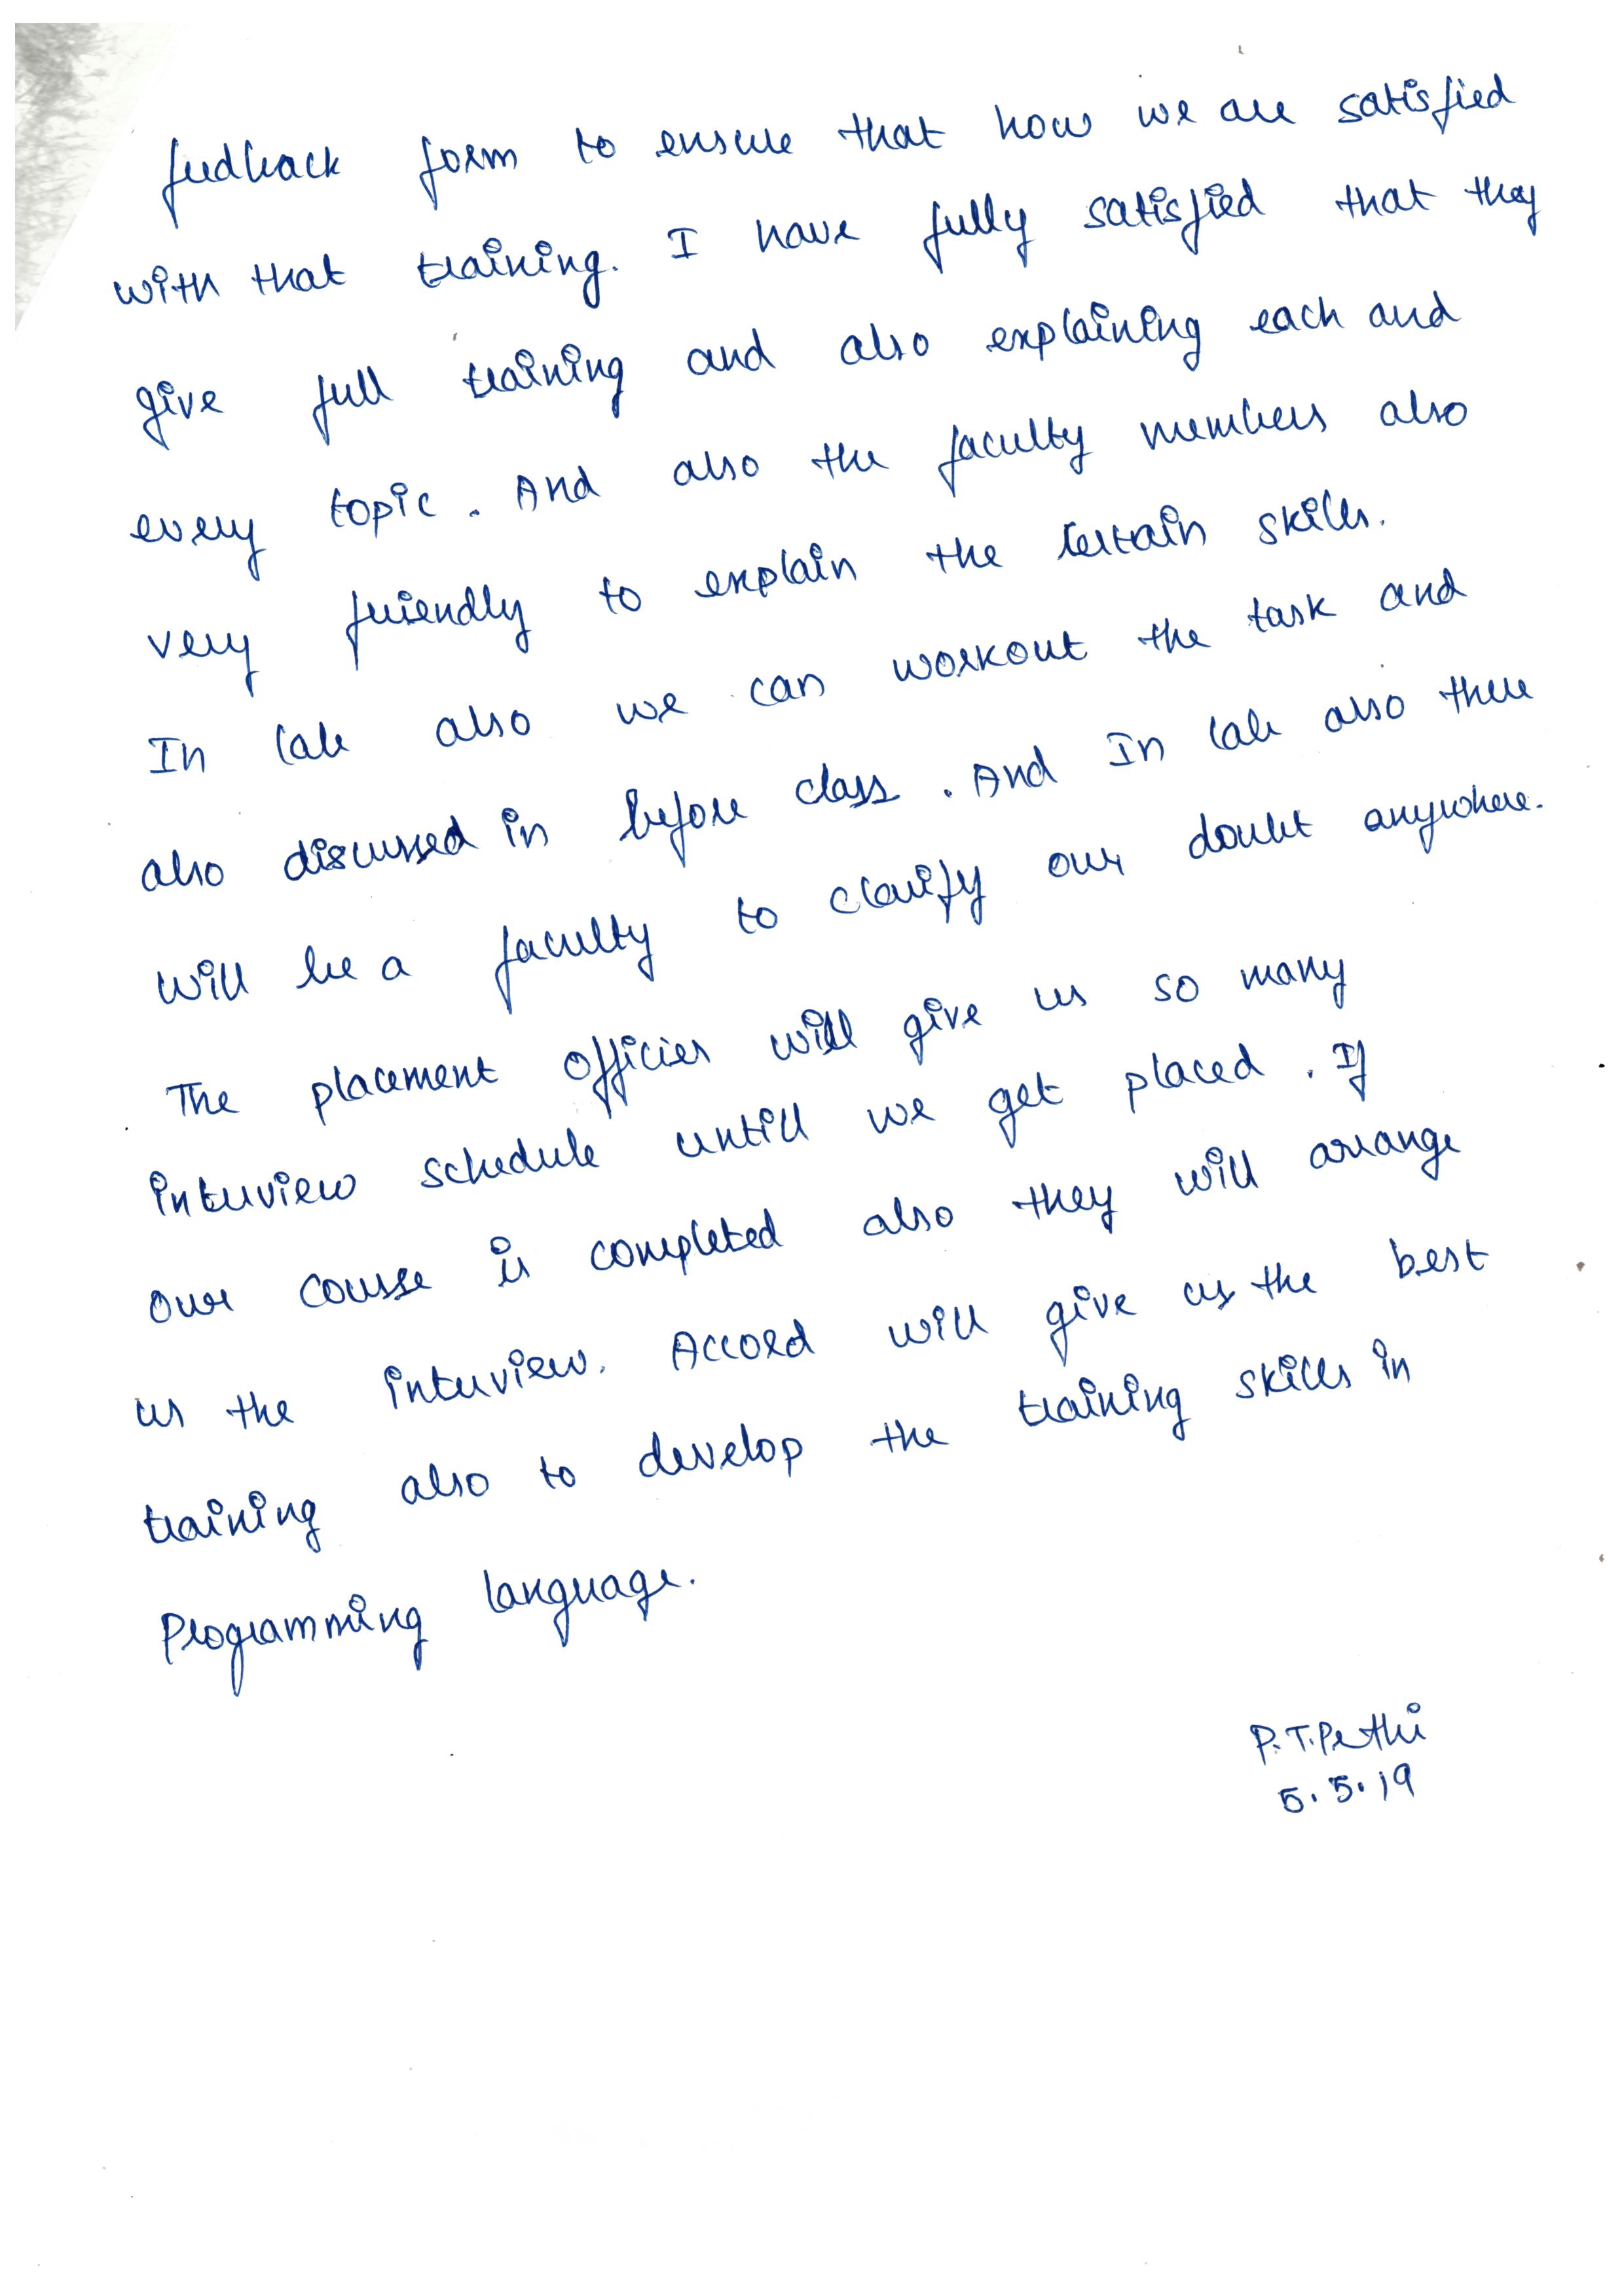 feedback form to ensure that how we are satisfied
with that training. I have fully satisfied that they
give full training and also explaining each and
every topic. And also the faculty members also
very friendly to explain the certain skills.
In lab also we can workout the task and
also discussed in before class. And In lab also there
will be a faculty to clarify our doubt anywhere.
The placement officier will give us so many
interview schedule untill we get placed. If
our course is completed also they will arrange
us the interview. Accord will give us the best
training also to develop the training skills in
Programming language.
P.T.Pethi
5.5.19